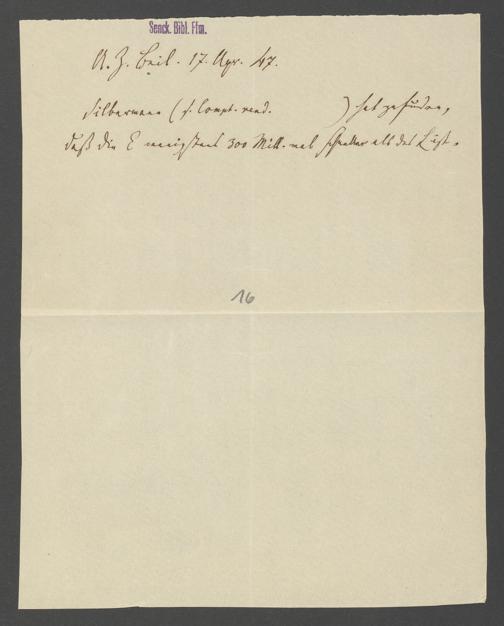 Senck. Bibl. Ffm.
A. Z. Beil. 17. Apr. 47.
Silbermann (s. Compt. rend. ) hat gefunden,
daß die E wenigstens 300 Mill. mal schneller als das Licht.
16